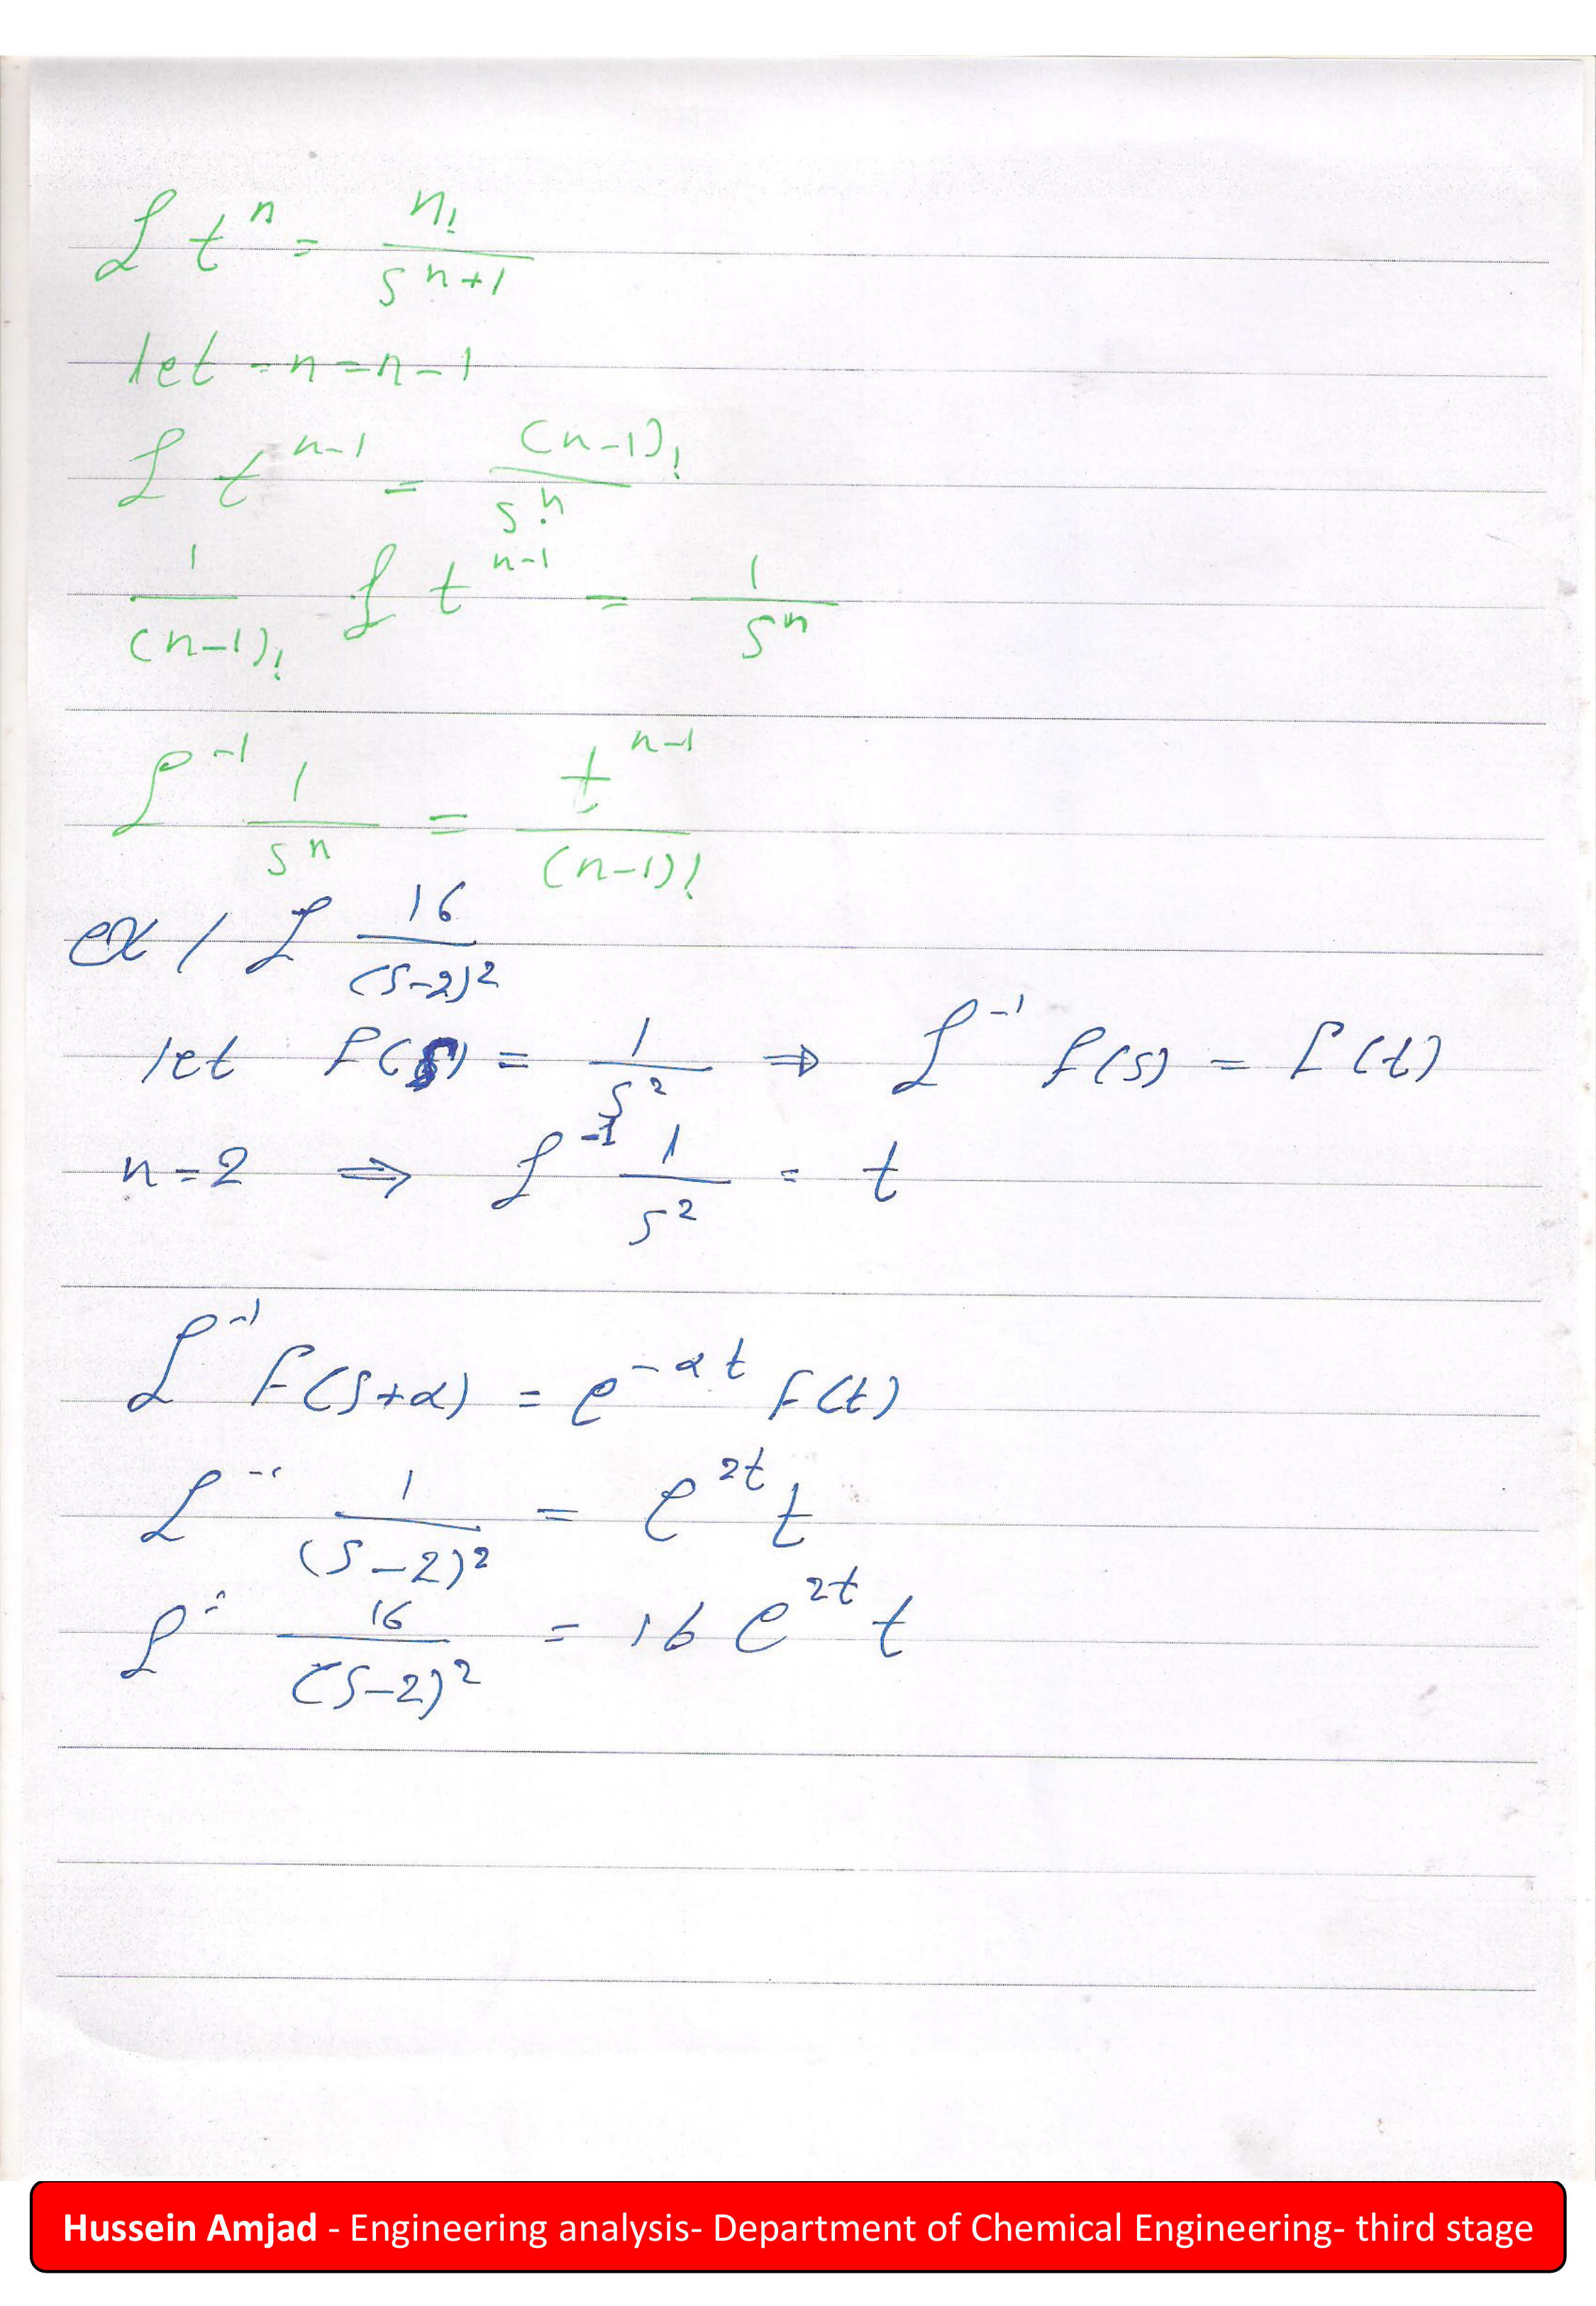 ℒ t^n = n! / s^(n+1)
let - n = n-1
ℒ t^(n-1) = (n-1)! / s^n
1/(n-1)! ℒ t^(n-1) = 1/s^n
ℒ^-1 1/s^n = t^(n-1) / (n-1)!
ex / ℒ 16/(s-2)^2
let f(s) = 1/s^2 ⇒ ℒ^-1 f(s) = f(t)
n = 2 ⇒ ℒ^-1 1/s^2 = t
ℒ^-1 F(s+α) = e^(-αt) f(t)
ℒ^-1 1/(s-2)^2 = e^(2t) t
ℒ^-1 16/(s-2)^2 = 16 e^(2t) t
Hussein Amjad - Engineering analysis- Department of Chemical Engineering- third stage